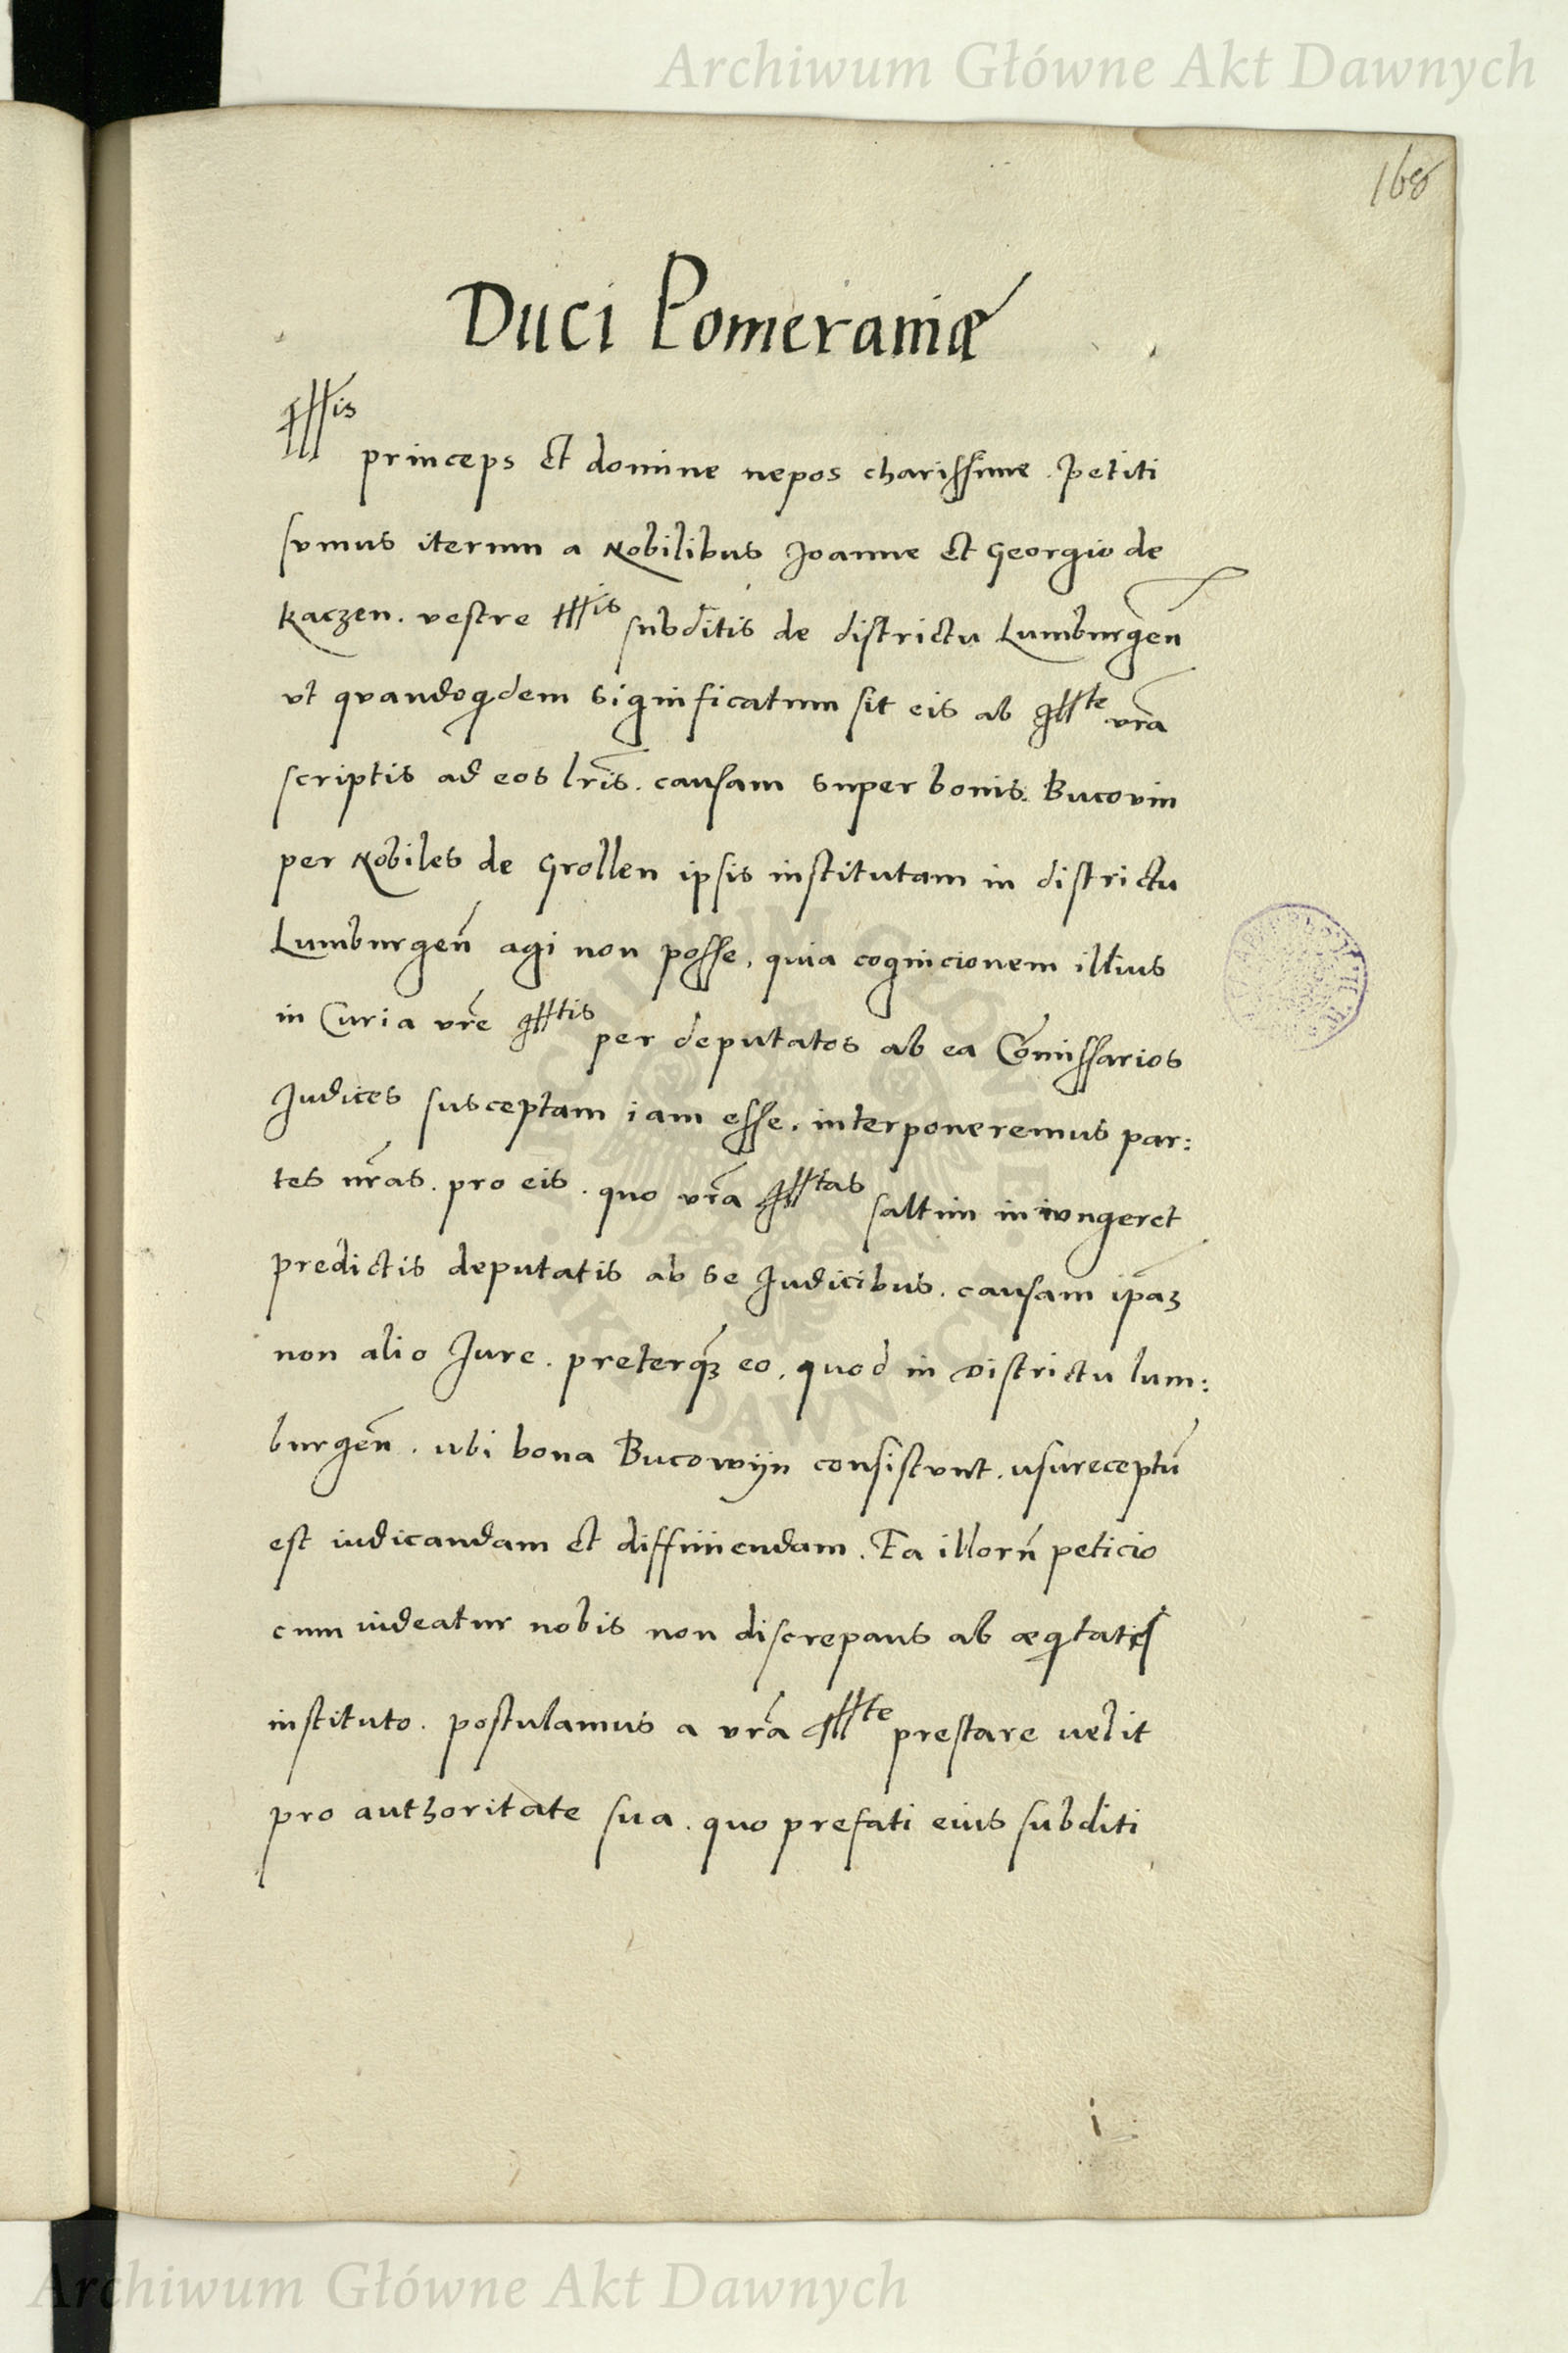 Archiwum Główne Akt Dawnych
168
Duci Pomeraniæ
Illis
princeps et domine nepos charissime . Petiti
sumus iterum a Nobilibus Joanne et Georgio de
Kaczen . vestre Illis subditis de districtu Lumburgen̄
vt quandoqdem significatum sit eis ab Illte vrā
scriptis ad eos lrīs . causam super bonis Bucovin
per Nobiles de Grollen ipsis institutam in districtu
Lumburgen̄ agi non posse , quia cognicionem illius
in Curia vrē Illtis per deputatos ab ea Com̄issarios
Judices susceptam iam esse . interponeremus par:
tes nrās . pro eis . quo vrā Illtas saltim iniungeret
predictis deputatis ab se Judicibus . causam ip̄aꝫ
non alio Jure . preterqꝫ eo , quod in Districtu lum:
burgen̄ . ubi bona Bucowijn consistunt . usureceptū
est iudicandam et diffiniendam . Ea illorū peticio
cum uideatur nobis non discrepans ab æqitatis
instituto . postulamus a vrā Illte prestare uelit
pro authoritate sua . quo prefati eius subditi
Archiwum Główne Akt Dawnych